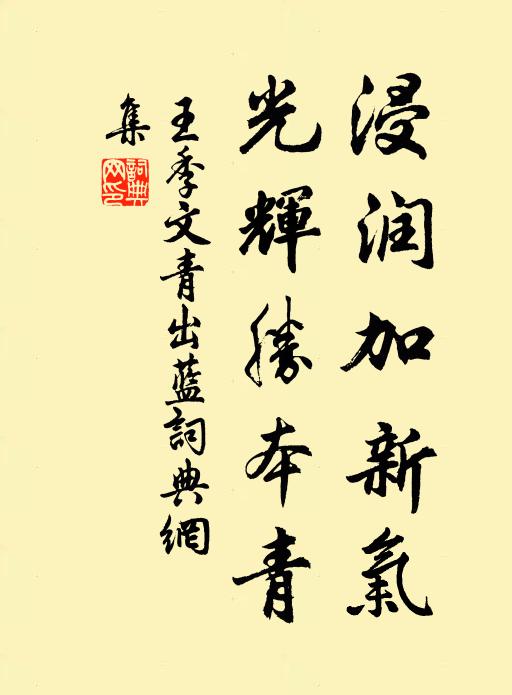 浸润加新氣
光輝勝本青
王季文青出藍詞典網
集
詞典
网印